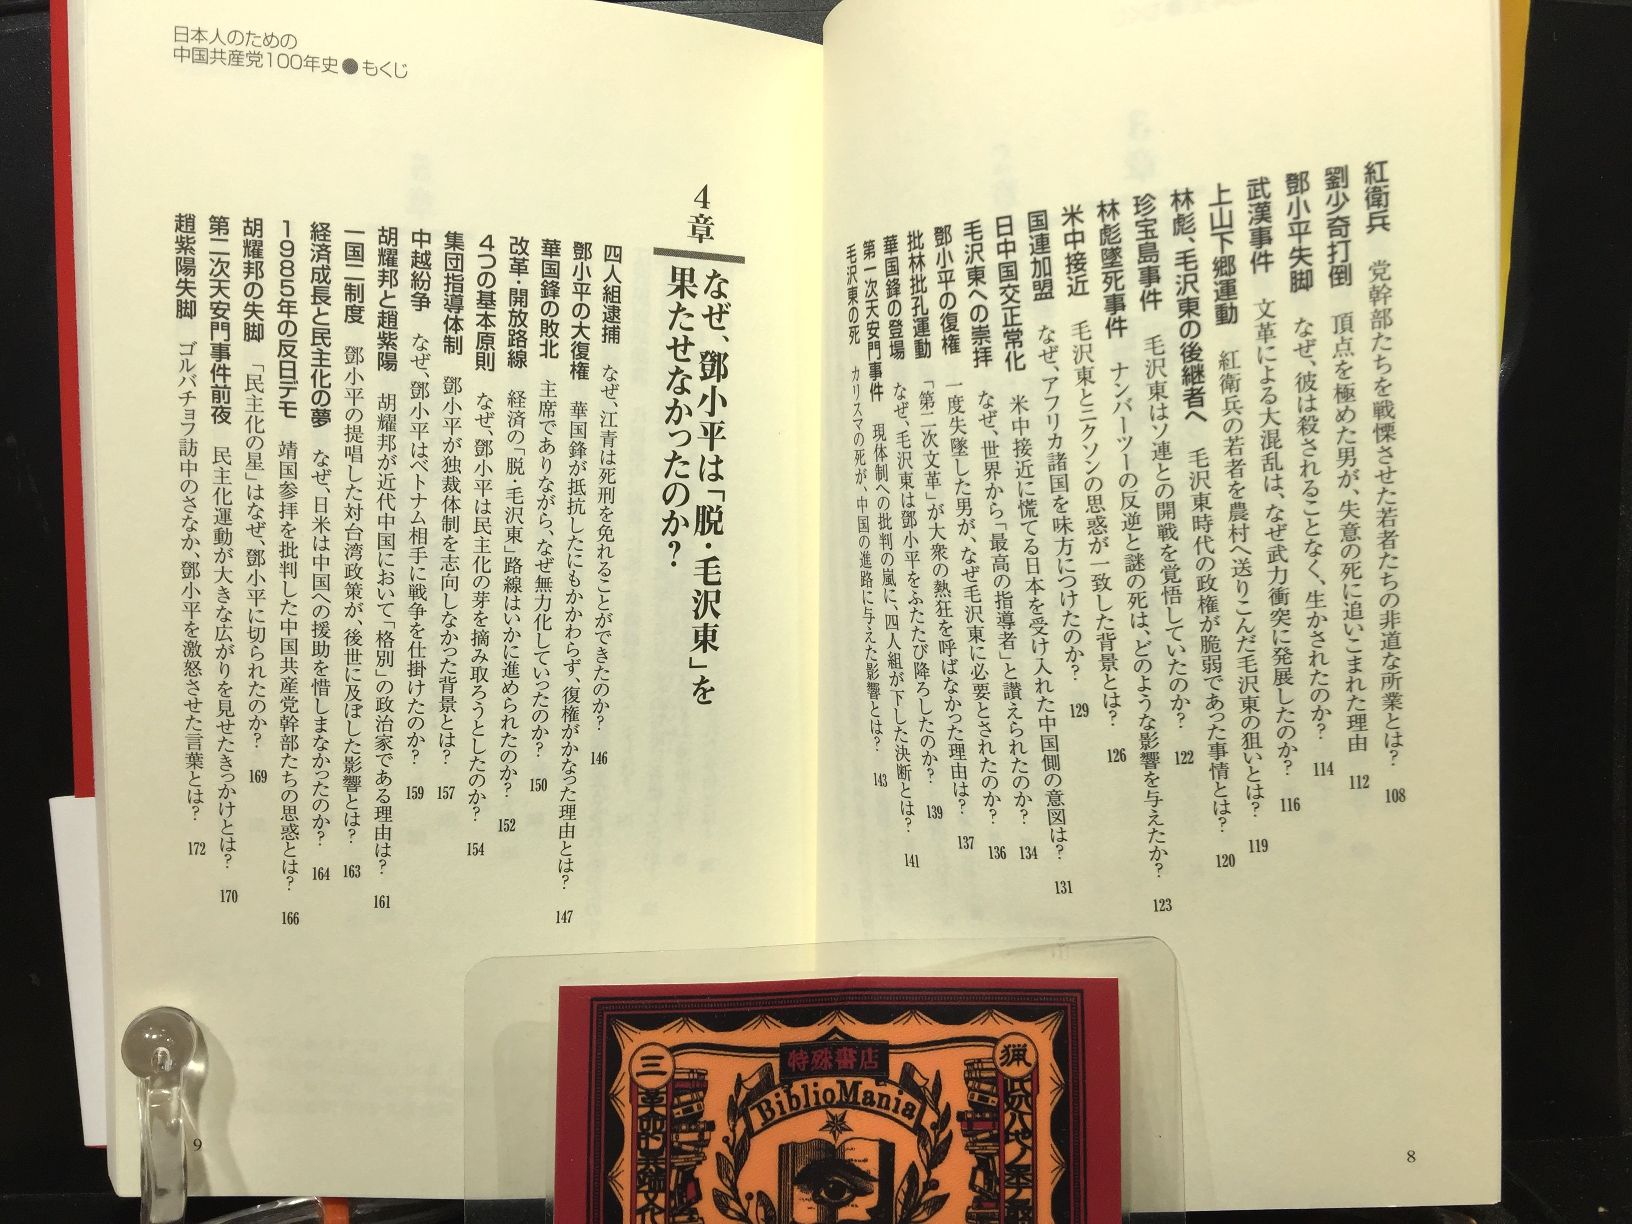 紅衛兵 党幹部たちを戦慄させた若者たちの非道な所業とは? 108
劉少奇打倒 頂点を極めた男が、失意の死に追いこまれた理由 112
鄧小平失脚 なぜ、彼は殺されることなく、生かされたのか? 114
武漢事件 文革による大混乱は、なぜ武力衝突に発展したのか? 116
上山下郷運動 紅衛兵の若者を農村へ送りこんだ毛沢東の狙いとは? 119
林彪、毛沢東の後継者へ 毛沢東時代の政権が脆弱であった事情とは? 120
珍宝島事件 毛沢東はソ連との開戦を覚悟していたのか? 122
林彪墜死事件 ナンバーツーの反逆と謎の死は、どのような影響を与えたか? 123
米中接近 毛沢東とニクソンの思惑が一致した背景とは? 126
国連加盟 なぜ、アフリカ諸国を味方につけたのか? 129
日中国交正常化 米中接近に慌てる日本を受け入れた中国側の意図は? 131
毛沢東への崇拝 なぜ、世界から「最高の指導者」と讃えられたのか? 134
鄧小平の復権 一度失墜した男が、なぜ毛沢東に必要とされたのか? 136
批林批孔運動 「第二次文革」が大衆の熱狂を呼ばなかった理由は? 137
華国鋒の登場 なぜ、毛沢東は鄧小平をふたたび降ろしたのか? 139
第一次天安門事件 現体制への批判の嵐に、四人組が下した決断とは? 141
毛沢東の死 カリスマの死が、中国の進路に与えた影響とは? 143
8
日本人のための
中国共産党100年史●もくじ
4章
なぜ、鄧小平は「脱・毛沢東」を
果たせなかったのか?
四人組逮捕 なぜ、江青は死刑を免れることができたのか? 146
鄧小平の大復権 華国鋒が抵抗したにもかかわらず、復権がかなった理由とは? 147
華国鋒の敗北 主席でありながら、なぜ無力化していったのか? 150
改革・開放路線 経済の「脱・毛沢東」路線はいかに進められたのか? 152
4つの基本原則 なぜ、鄧小平は民主化の芽を摘み取ろうとしたのか? 154
集団指導体制 鄧小平が独裁体制を志向しなかった背景とは? 157
中越紛争 なぜ、鄧小平はベトナム相手に戦争を仕掛けたのか? 159
胡耀邦と趙紫陽 胡耀邦が近代中国において「格別」の政治家である理由は? 161
一国二制度 鄧小平の提唱した対台湾政策が、後世に及ぼした影響とは? 163
経済成長と民主化の夢 なぜ、日米は中国への援助を惜しまなかったのか? 164
1985年の反日デモ 靖国参拝を批判した中国共産党幹部たちの思惑とは? 166
胡耀邦の失脚 「民主化の星」はなぜ、鄧小平に切られたのか? 169
第二次天安門事件前夜 民主化運動が大きな広がりを見せたきっかけとは? 170
趙紫陽失脚 ゴルバチョフ訪中のさなか、鄧小平を激怒させた言葉とは? 172
9
特殊書店
BiblioMania
三
猟